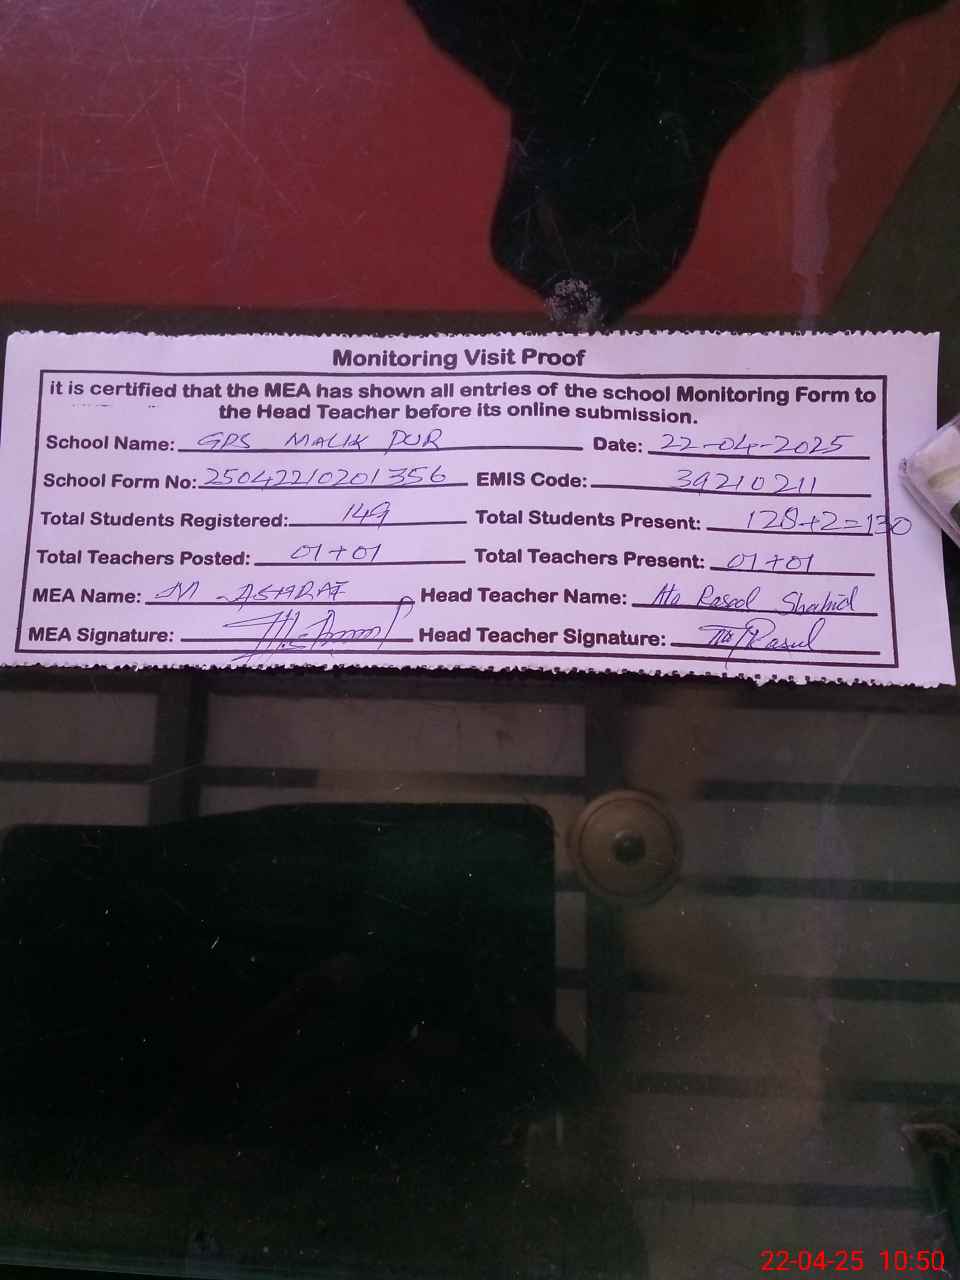 Monitoring Visit Proof
it is certified that the MEA has shown all entries of the school Monitoring Form to
the Head Teacher before its online submission.
School Name: GPS MALIK PUR Date: 22-04-2025
School Form No: 25042210201356 EMIS Code: 39210211
Total Students Registered: 149 Total Students Present: 128+2=130
Total Teachers Posted: 01+01 Total Teachers Present: 01+01
MEA Name: M ASHRAF Head Teacher Name: Ata Rasool Shahid
MEA Signature: Head Teacher Signature: Ata Rasul
22-04-25 10:50